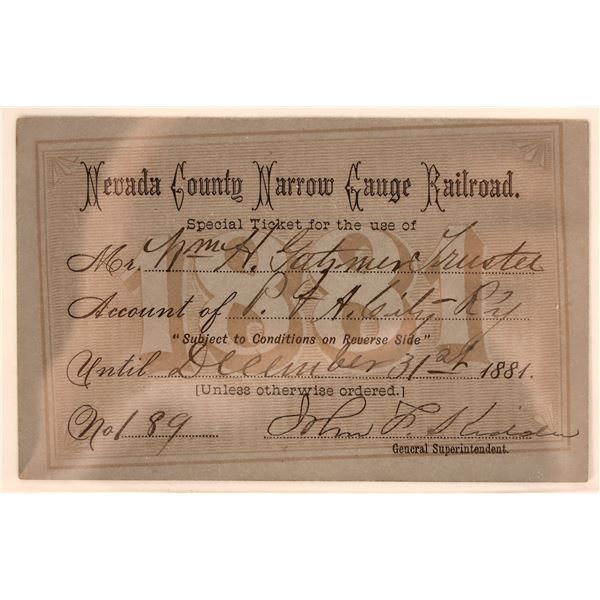 Nevada County Narrow Gauge Railroad.
Special Ticket for the use of
Mr. Wm H. Gatzmer Trustee
Account of P. & A. City R'y
"Subject to Conditions on Reverse Side"
Until December 31st 1881.
[Unless otherwise ordered.]
No 189
John F. Kidder
General Superintendent.
1881